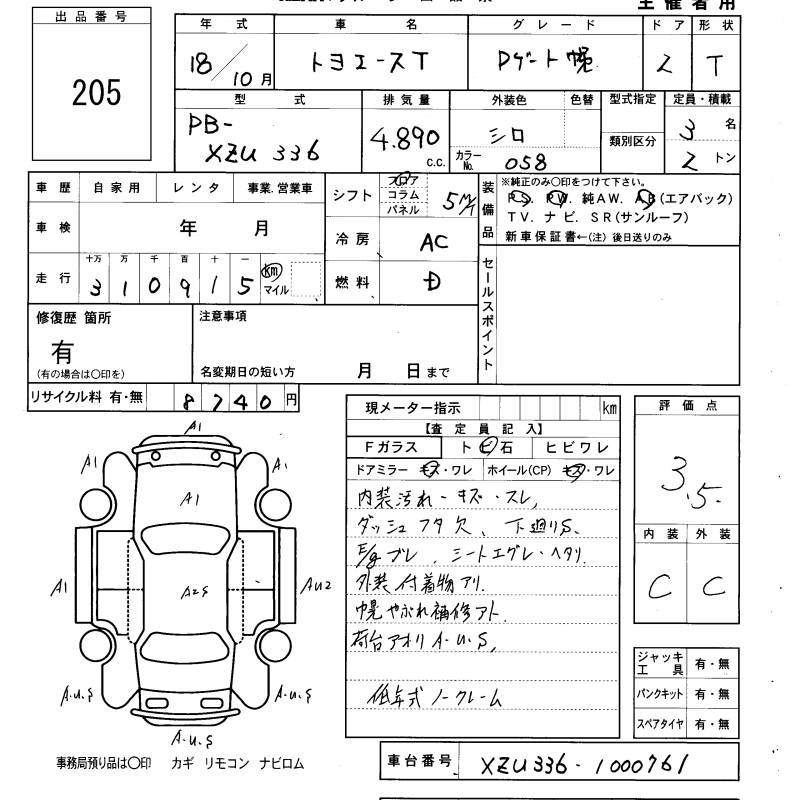 主催者用
出品番号
205
年式 車名 グレード ドア 形状
18/10月 トヨエースT Pゲート幌 2 T
型式 排気量 外装色 色替 型式指定 定員・積載
PB-
XZU 336
4.890 c.c.
シロ
カラーNo. 058
類別区分
3名
2トン
車歴 自家用 レンタ 事業.営業車
車検 年 月
走行 十万 万 千 百 十 一
310915 km マイル
シフト フロア コラム パネル 5M/T
冷房 AC
燃料 D
装備品
※純正のみ〇印をつけて下さい。
PS. PW. 純AW. AB(エアバック)
TV. ナビ. SR(サンルーフ)
新車保証書←(注) 後日送りのみ
セールスポイント
修復歴 箇所
有
(有の場合は〇印を)
注意事項
名変期日の短い方 月 日まで
リサイクル料 有・無 8740円
現メーター指示 km
【査定員記入】
Fガラス トビ石 ヒビワレ
ドアミラー キズ・ワレ ホイール(CP) キズ・ワレ
内装汚れ・キズ・スレ,
ダッシュフタ欠、下廻りS.
E/gブレ、シートエグレ・ヘタリ
外装付着物アリ.
幌やぶれ補修アト.
荷台アオリA.U.S,
低年式ノークレーム
評価点
3.5.
内装 外装
C C
ジャッキ工具 有・無
パンクキット 有・無
スペアタイヤ 有・無
A1
A1 A1
A1
A1 A2S AU2
A.U.S A.U.S
A.U.S
事務局預り品は〇印 カギ リモコン ナビロム
車台番号 XZU336-1000761